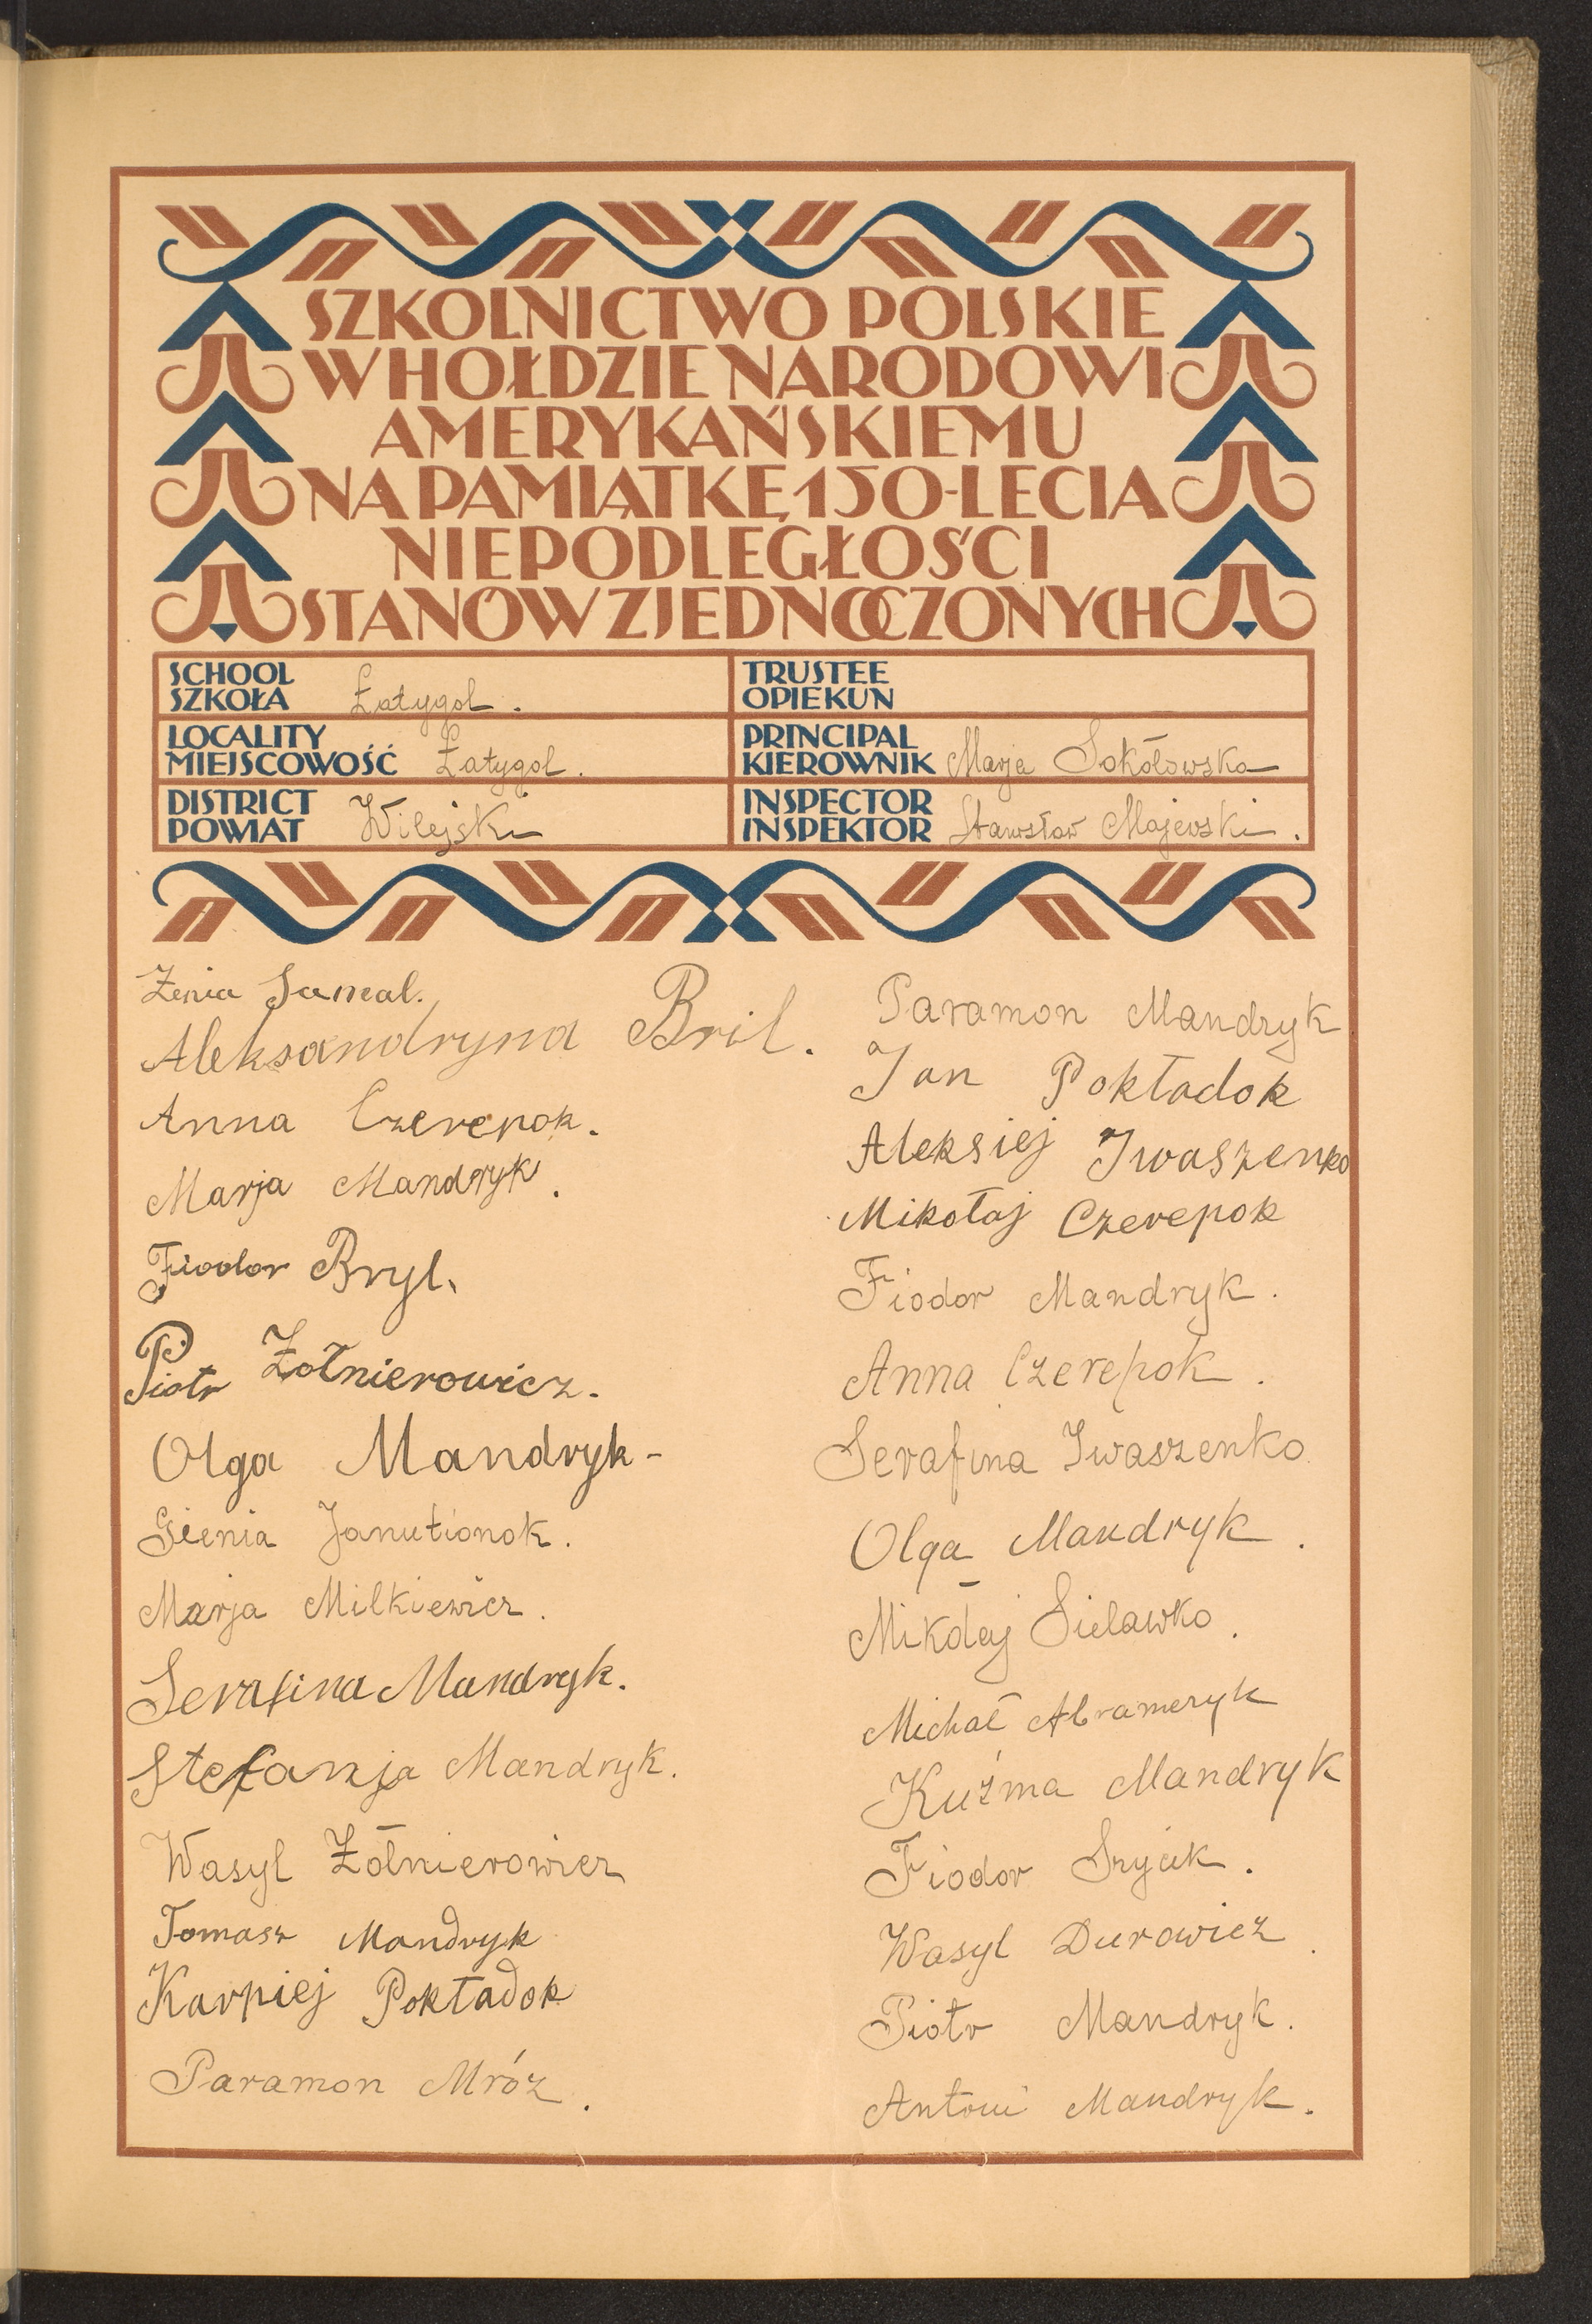 SZKOLNICTWO POLSKIE
W HOŁDZIE NARODOWI
AMERYKAŃSKIEMU
NA PAMIĄTKĘ 150-LECIA
NIEPODLEGŁOŚCI
STANÓW ZJEDNOCZONYCH
SCHOOL
SZKOŁA Łatygol.
TRUSTEE
OPIEKUN
LOCALITY
MIEJSCOWOŚĆ Łatygol.
PRINCIPAL
KIEROWNIK Marja Sokołowska
DISTRICT
POWIAT Wilejski
INSPECTOR
INSPEKTOR Stanisław Majewski.
Żenia Samal.
Aleksandryna Bril.
Anna Czerepok.
Marja Mandryk.
Fiodor Bryl.
Piotr Żołnierowicz.
Olga Mandryk-
Gienia Janutionok.
Marja Milkiewicz.
Serafina Mandryk.
Stefanja Mandryk.
Wasyl Żołnierowicz
Tomasz Mandryk
Karpiej Pokładok
Paramon Mróz.
Paramon Mandryk
Jan Pokładok
Aleksiej Iwaszenko
Mikołaj Czerepok
Fiodor Mandryk.
Anna Czerepok.
Serafina Iwaszenko.
Olga Mandryk.
Mikołaj Sielawko.
Michał
Kuźma Mandryk
Fiodor
Wasyl Durowicz.
Piotr Mandryk.
Antoni Mandryk.